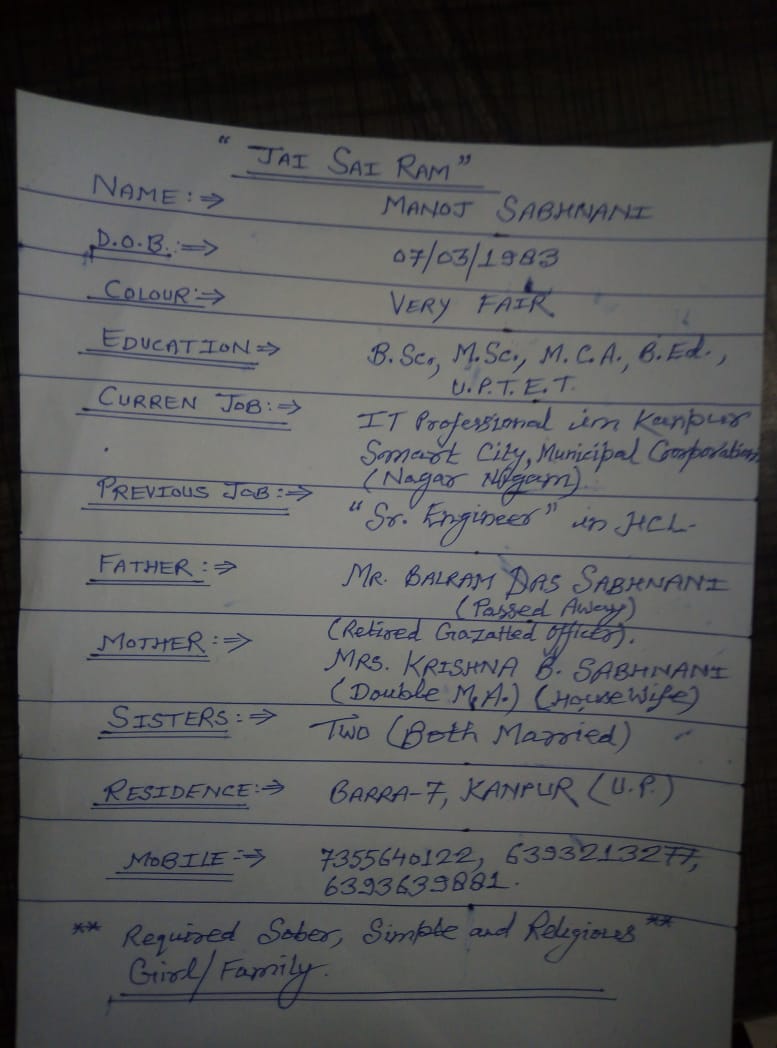 " JAI SAI RAM"
NAME:⇒ MANOJ SABHNANI
D.O.B.:⇒ 07/03/1983
COLOUR:⇒ VERY FAIR
EDUCATION⇒ B.Sc., M.Sc., M.C.A., B.Ed.,
U.P.T.E.T.
CURREN JOB:⇒ IT Professional in Kanpur
Smart City, Municipal Coorporation
(Nagar Nigam)
PREVIOUS JOB:⇒ "Sr. Engineer" in HCL-
FATHER:⇒ MR. BALRAM DAS SABHNANI
(Passed Away)
(Retired Gazatted Officer).
MOTHER:⇒ MRS. KRISHNA B. SABHNANI
(Double M.A.) (House Wife)
SISTERS:⇒ Two (Both Married)
RESIDENCE:⇒ BARRA-7, KANPUR (U.P.)
MOBILE⇒ 7355640122, 6393213277,
6393639881.
** Required Sober, Simple and Religious **
Girl/Family.